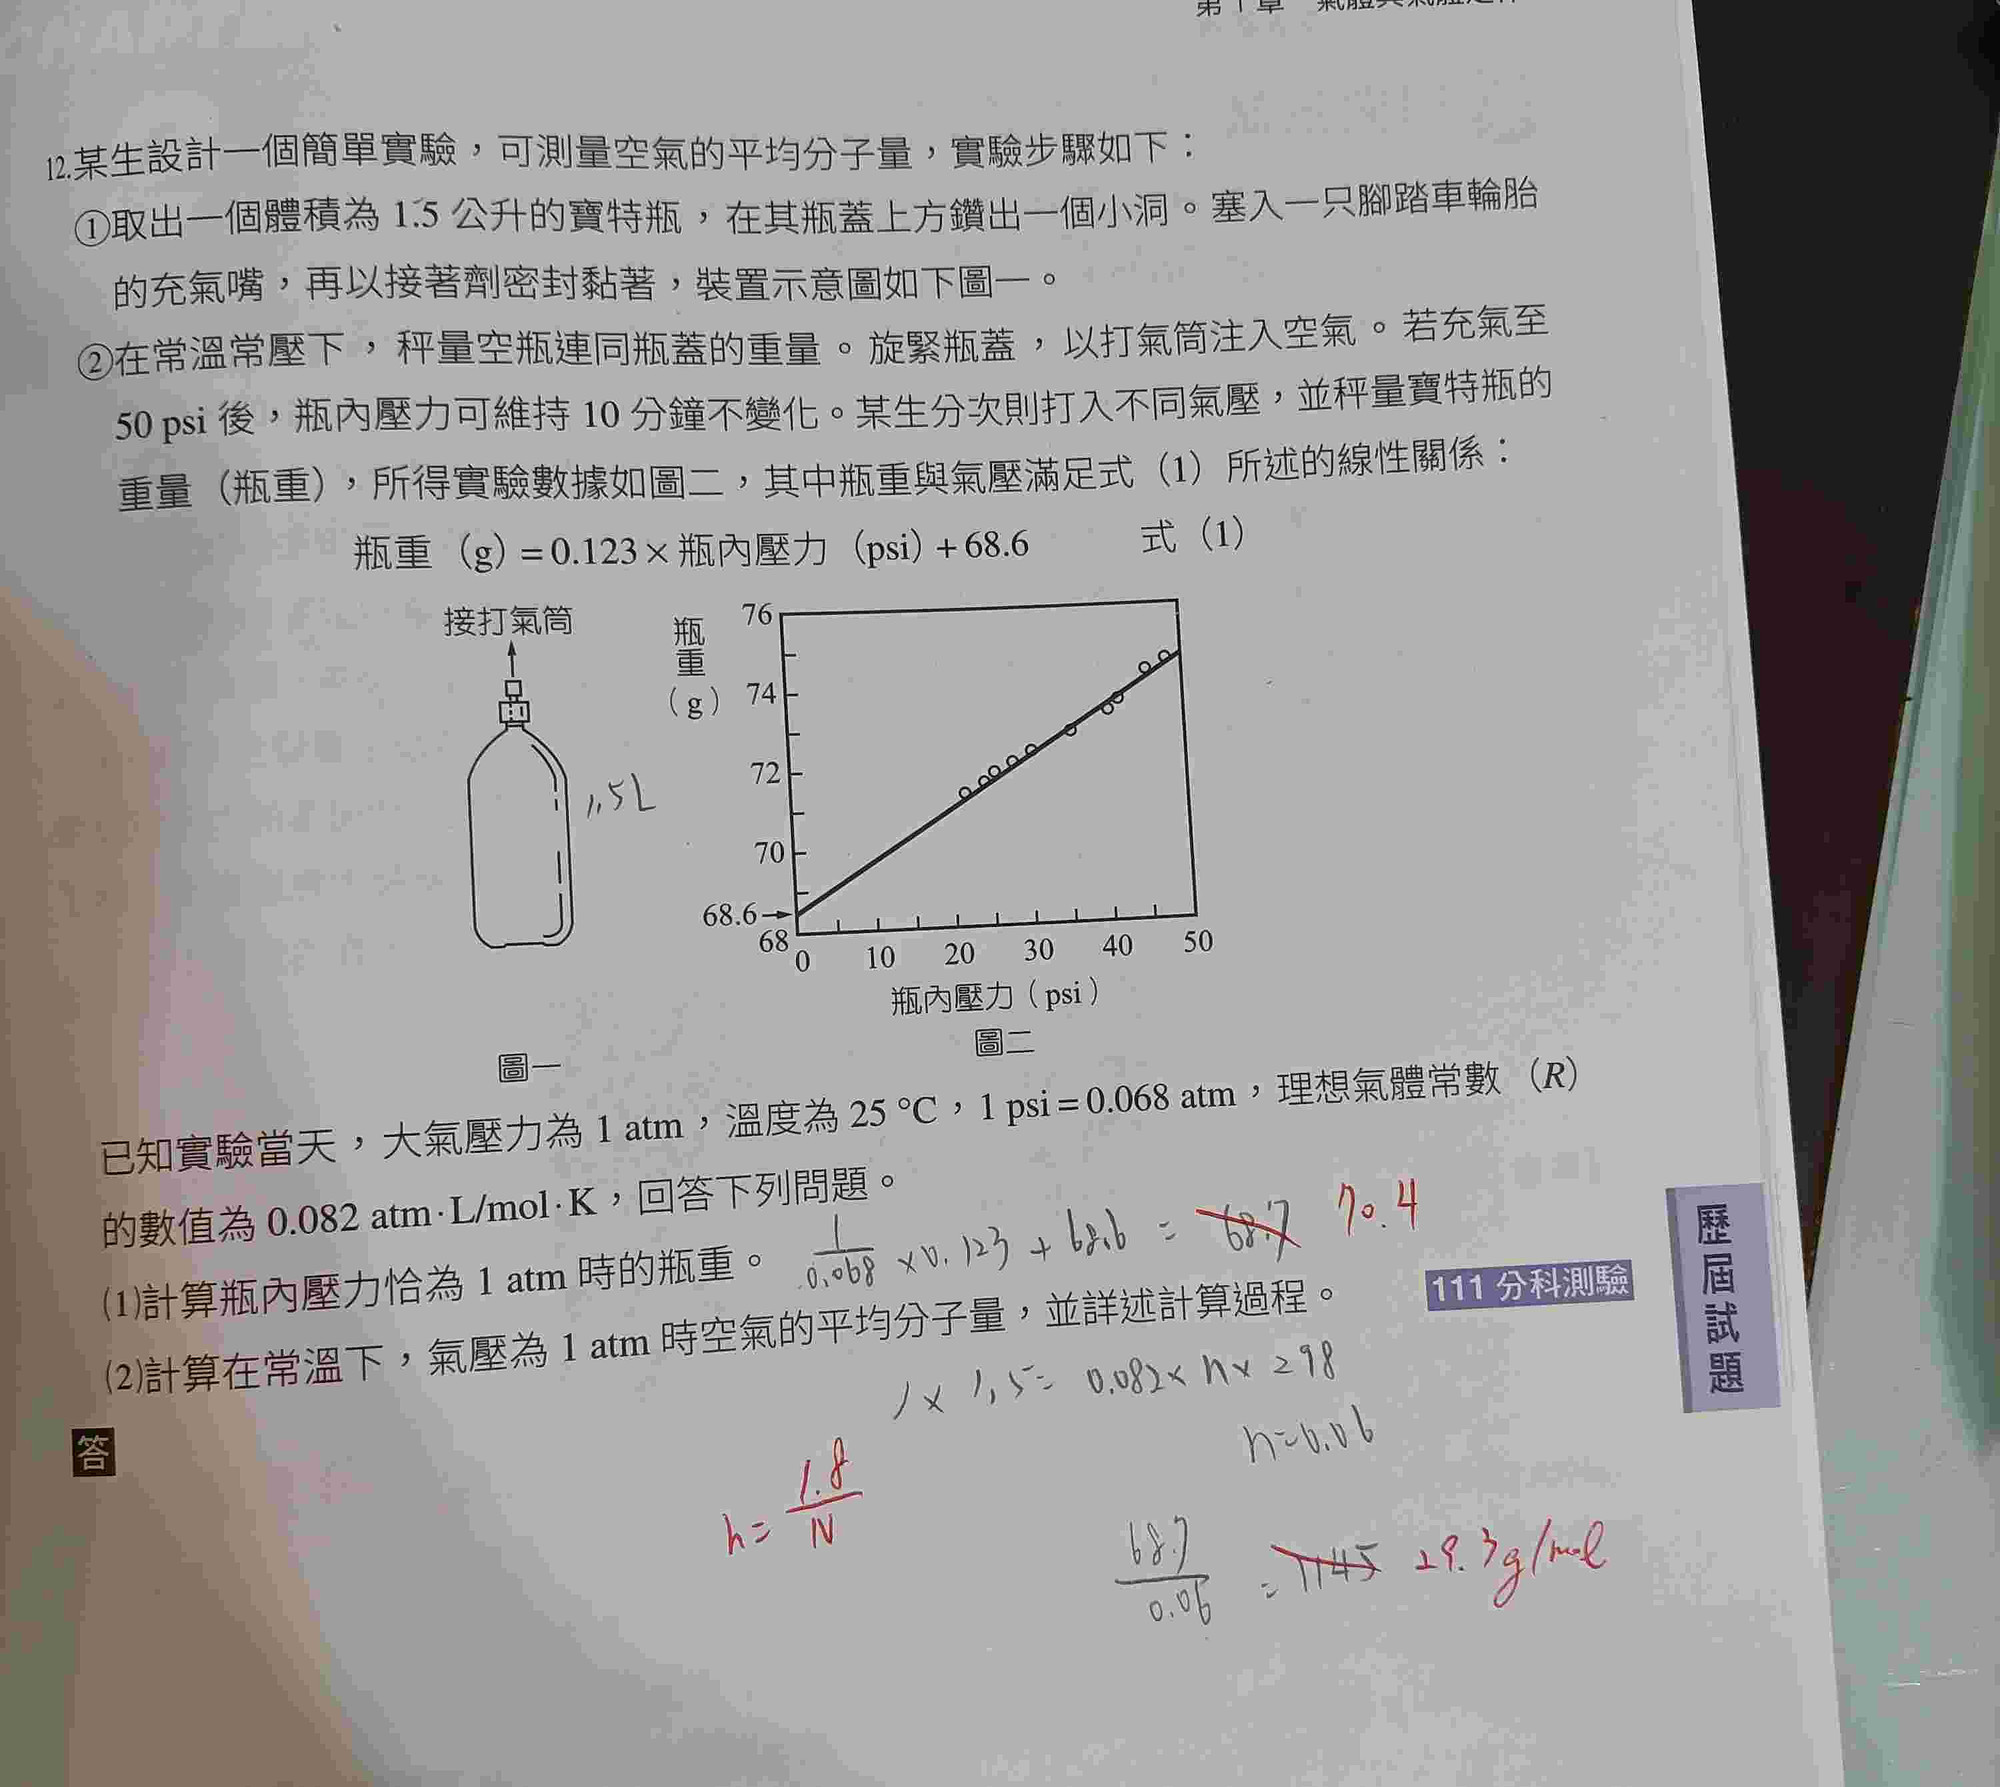 12.某生設計一個簡單實驗，可測量空氣的平均分子量，實驗步驟如下：
①取出一個體積為 1.5 公升的寶特瓶，在其瓶蓋上方鑽出一個小洞。塞入一只腳踏車輪胎
的充氣嘴，再以接著劑密封黏著，裝置示意圖如下圖一。
②在常溫常壓下，秤量空瓶連同瓶蓋的重量。旋緊瓶蓋，以打氣筒注入空氣。若充氣至
50 psi 後，瓶內壓力可維持 10 分鐘不變化。某生分次則打入不同氣壓，並秤量寶特瓶的
重量（瓶重），所得實驗數據如圖二，其中瓶重與氣壓滿足式（1）所述的線性關係：
瓶重（g）= 0.123 × 瓶內壓力（psi）+ 68.6　　式（1）
接打氣筒
1.5L
圖一
瓶重（g）
76
74
72
70
68.6
68
0 10 20 30 40 50
瓶內壓力（psi）
圖二
已知實驗當天，大氣壓力為 1 atm，溫度為 25 °C，1 psi = 0.068 atm，理想氣體常數（R）
的數值為 0.082 atm·L/mol·K，回答下列問題。
(1)計算瓶內壓力恰為 1 atm 時的瓶重。
1/0.068 × 0.123 + 68.6 = 68.7 70.4
(2)計算在常溫下，氣壓為 1 atm 時空氣的平均分子量，並詳述計算過程。
111 分科測驗
歷屆試題
1 × 1.5 = 0.082 × n × 298
n=0.06
答
n = 1.8/N
68.7/0.06 = 1145 29.3 g/mol